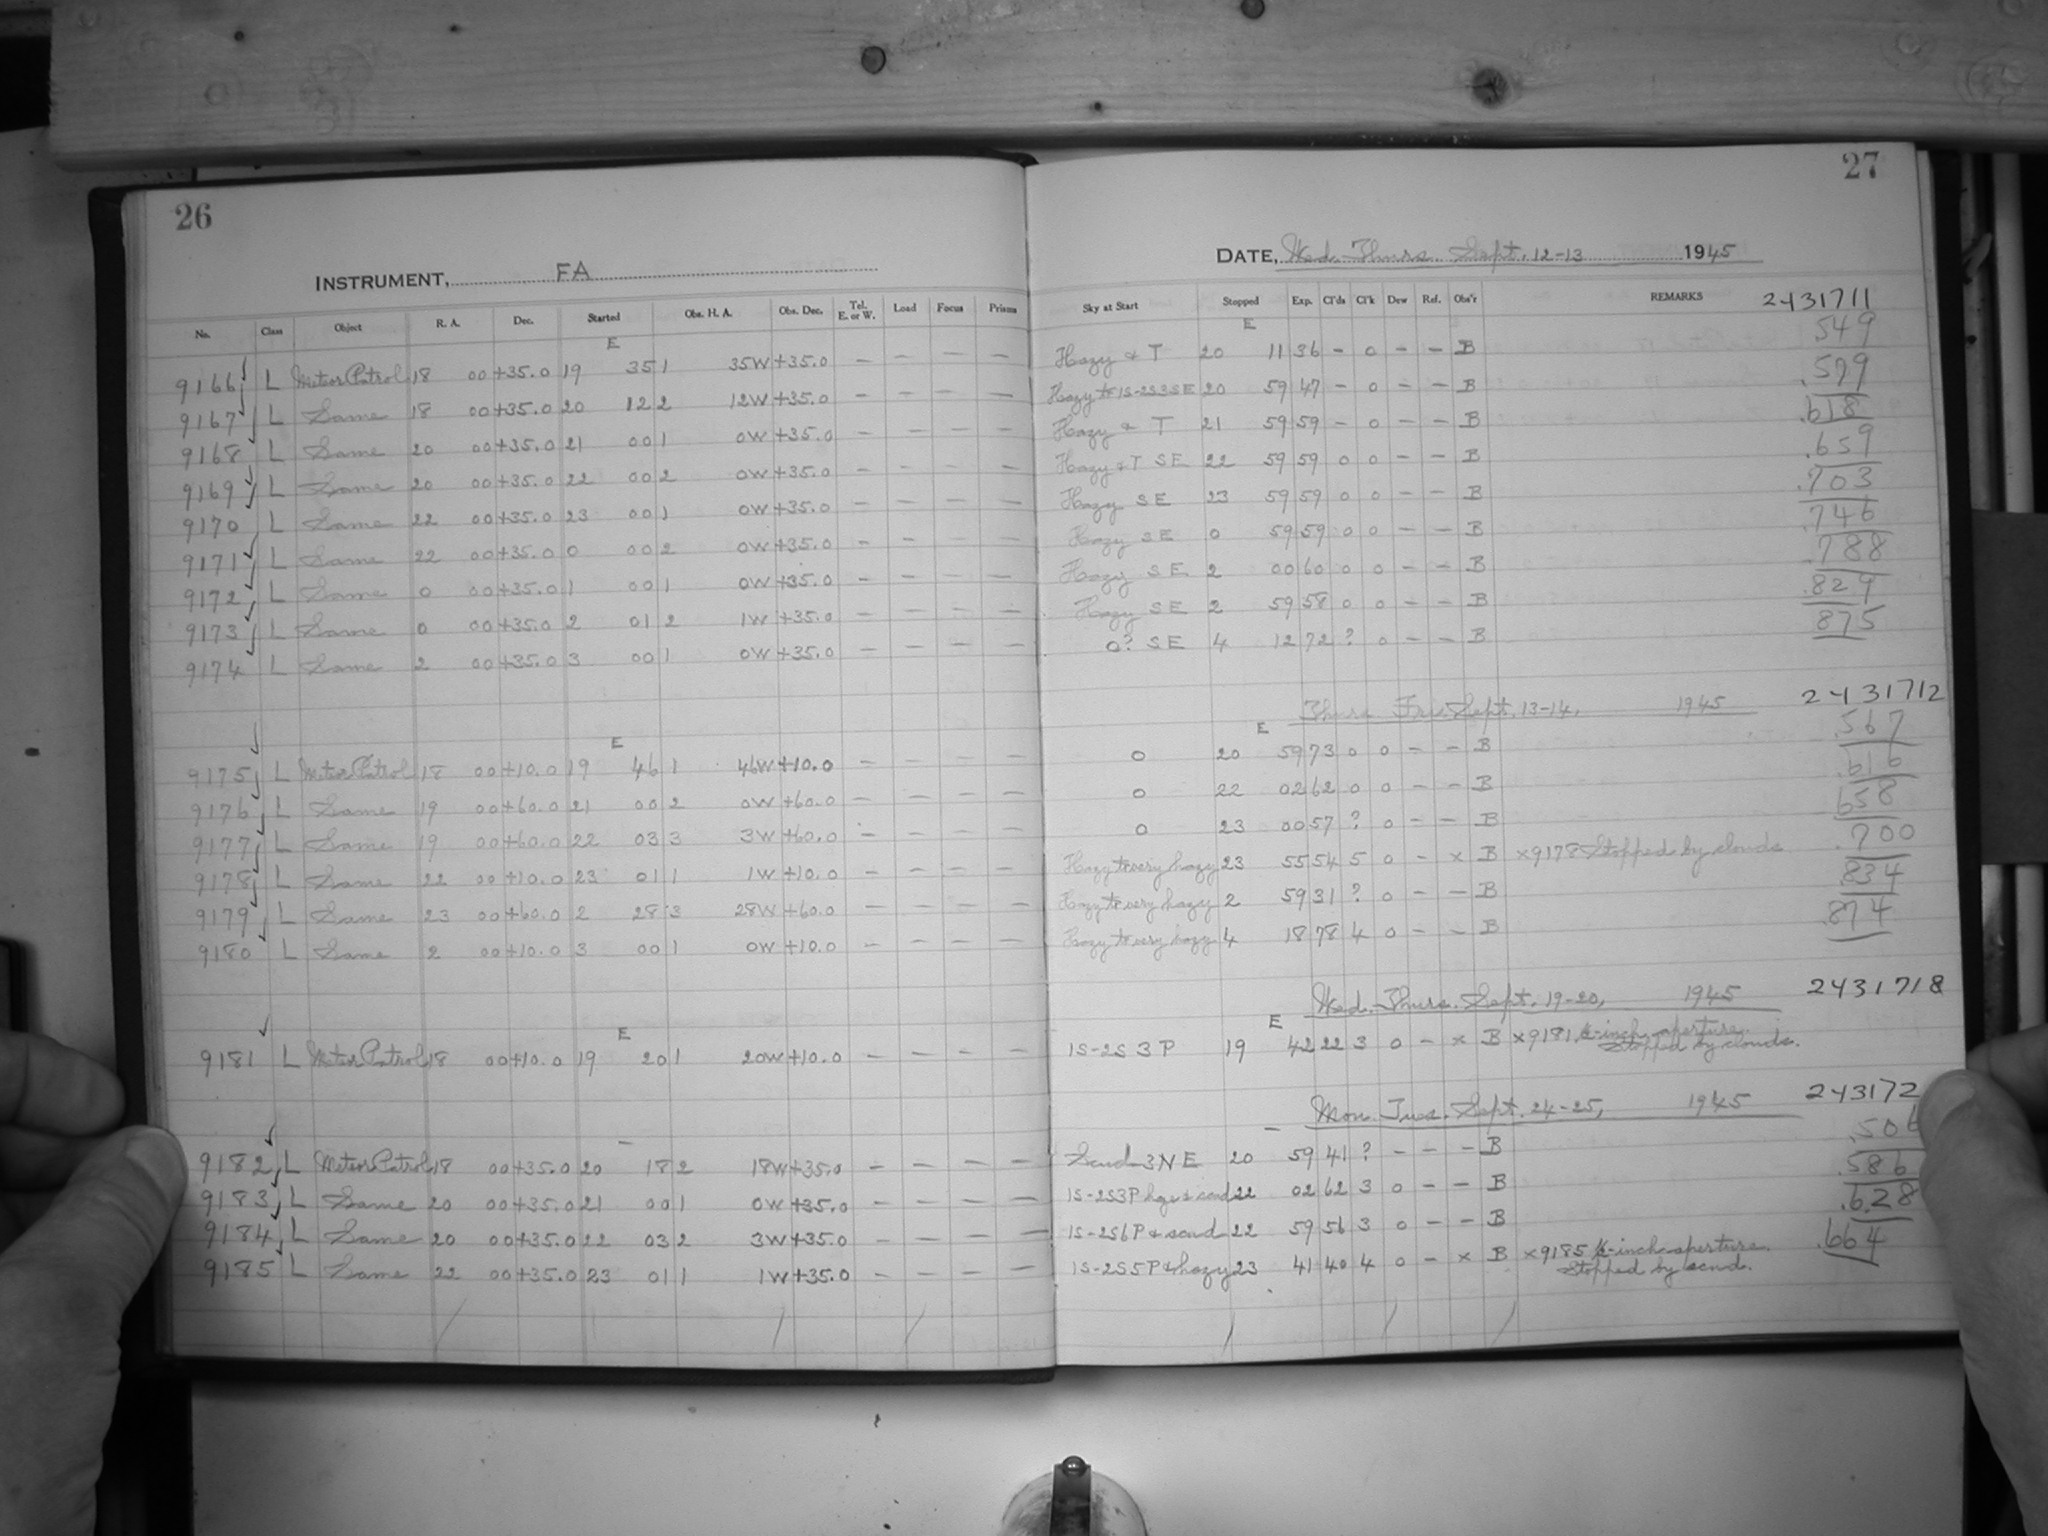 26
INSTRUMENT, FA
No. Class Object R. A. Dec. Started Obs. H. A. Obs. Dec. Tel. E. or W. Load Focus Prisms
E
9166 L Meteor Patrol 18 00 +35.0 19 35 1 35W +35.0 — — — —
9167 L Same 18 00 +35.0 20 12 2 12W +35.0 — — — —
9168 L Same 20 00 +35.0 21 00 1 0W +35.0 — — — —
9169 L Same 20 00 +35.0 22 00 2 0W +35.0 — — — —
9170 L Same 22 00 +35.0 23 00 1 0W +35.0 — — — —
9171 L Same 22 00 +35.0 0 00 2 0W +35.0 — — — —
9172 L Same 0 00 +35.0 1 00 1 0W +35.0 — — — —
9173 L Same 0 00 +35.0 2 01 2 1W +35.0 — — — —
9174 L Same 2 00 +35.0 3 00 1 0W +35.0 — — — —
E
9175 L Meteor Patrol 18 00 +10.0 19 46 1 46W +10.0 — — — —
9176 L Same 19 00 +60.0 21 00 2 0W +60.0 — — — —
9177 L Same 19 00 +60.0 22 03 3 3W +60.0 — — — —
9178 L Same 22 00 +10.0 23 01 1 1W +10.0 — — — —
9179 L Same 23 00 +60.0 2 28 3 28W +60.0 — — — —
9180 L Same 2 00 +10.0 3 00 1 0W +10.0 — — — —
E
9181 L Meteor Patrol 18 00 +10.0 19 20 1 20W +10.0 — — — —
—
9182 L Meteor Patrol 18 00 +35.0 20 18 2 18W +35.0 — — — —
9183 L Same 20 00 +35.0 21 00 1 0W +35.0 — — — —
9184 L Same 20 00 +35.0 22 03 2 3W +35.0 — — — —
9185 L Same 22 00 +35.0 23 01 1 1W +35.0 — — — —
27
DATE, Wed. Thurs. Sept. 12-13 1945
Sky at Start Stopped Exp. Cl'ds Cl'k Dew Ref. Obs'r REMARKS 2431711
E
Hazy & T 20 11 36 — 0 — — B .549
Hazy to 1S-2S3SE 20 59 47 — 0 — — B .579
Hazy & T 21 59 59 — 0 — — B .618
Hazy & T SE 22 59 59 0 0 — — B .659
Hazy SE 23 59 59 0 0 — — B .703
Hazy SE 0 59 59 0 0 — — B .746
Hazy SE 2 00 60 0 0 — — B .788
Hazy SE 2 59 58 0 0 — — B .829
0? SE 4 12 72 ? 0 — — B .875
Thurs Fri. Sept. 13-14, 1945 2431712
E
0 20 59 73 0 0 — — B .567
0 22 02 62 0 0 — — B .616
0 23 00 57 ? 0 — — B .658
Hazy to very hazy 23 55 54 5 0 — x B x9178 Stopped by clouds .700
Hazy to very hazy 2 59 31 ? 0 — — B .834
Hazy to very hazy 4 18 78 4 0 — — B .874
Wed. Thurs. Sept. 19-20, 1945 2431718
E
1S-2S 3P 19 42 22 3 0 — x B x9181 -inch aperture.
Stopped by clouds.
Mon. Tues. Sept. 24-25, 1945 243172
—
Scud 3NE 20 59 41 ? — — — B .506
1S-2S3P haze & scud 22 02 62 3 0 — — B .586
1S-2S6P & scud 22 59 56 3 0 — — B .628
1S-2S5P & hazy 23 41 40 4 0 — x B x9185 -inch aperture. .664
Stopped by scud.